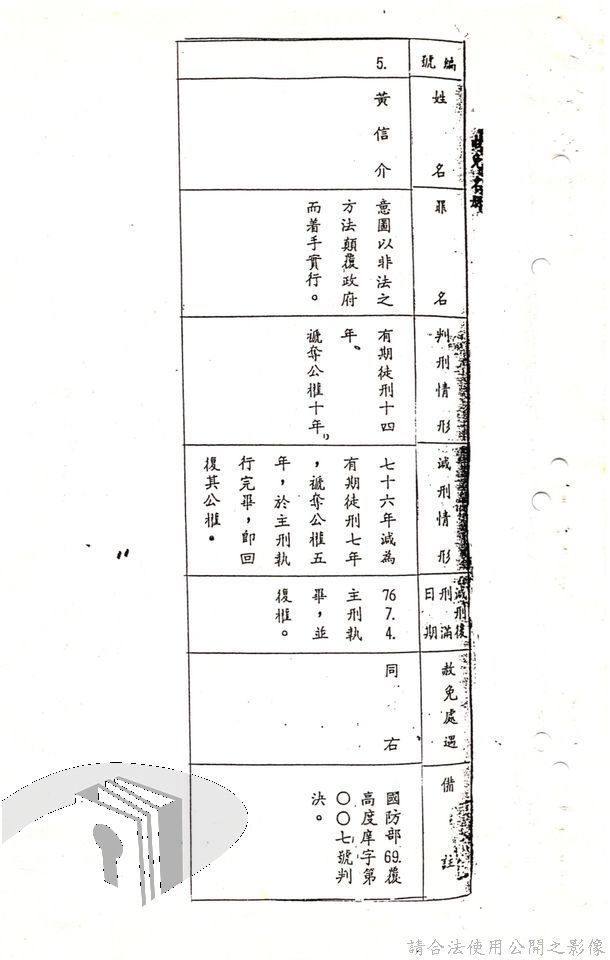 赦免名冊
編號
姓名
罪名
判刑情形
減刑情形
減刑後
刑滿
日期
赦免處遇
備註
5.
黃信介
意圖以非法之
方法顛覆政府
而着手實行。
有期徒刑十四
年、
褫奪公權十年，
七十六年減為
有期徒刑七年
，褫奪公權五
年，於主刑執
行完畢，即回
復其公權。
76
7.
4.
主刑執
畢，並
復權。
同右
國防部69.覆
高度庠字第
〇〇七號判
決。
請合法使用公開之影像